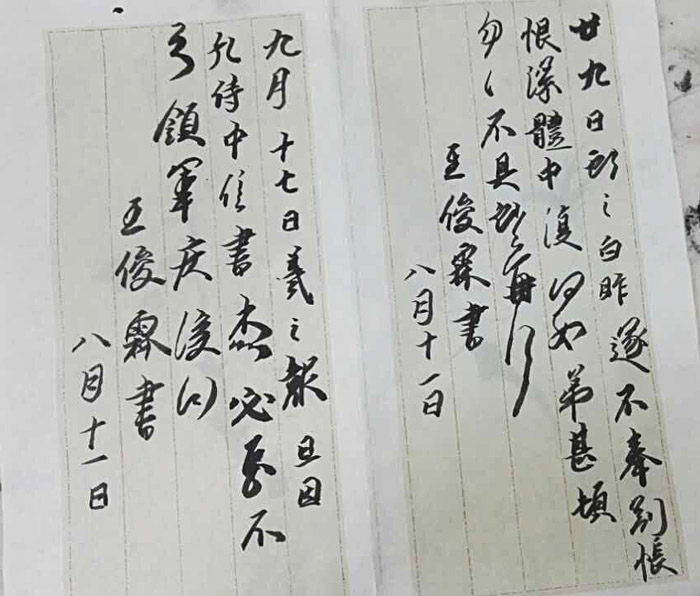 廿九日献之白昨遂不奉別悵
恨深體中復何如弟甚頓
匆匆不具献之再拜
王俊霖書
八月十一日
九月十七日羲之報且因
孔侍中信書想必至不
知領軍疾後問
王俊霖書
八月十一日